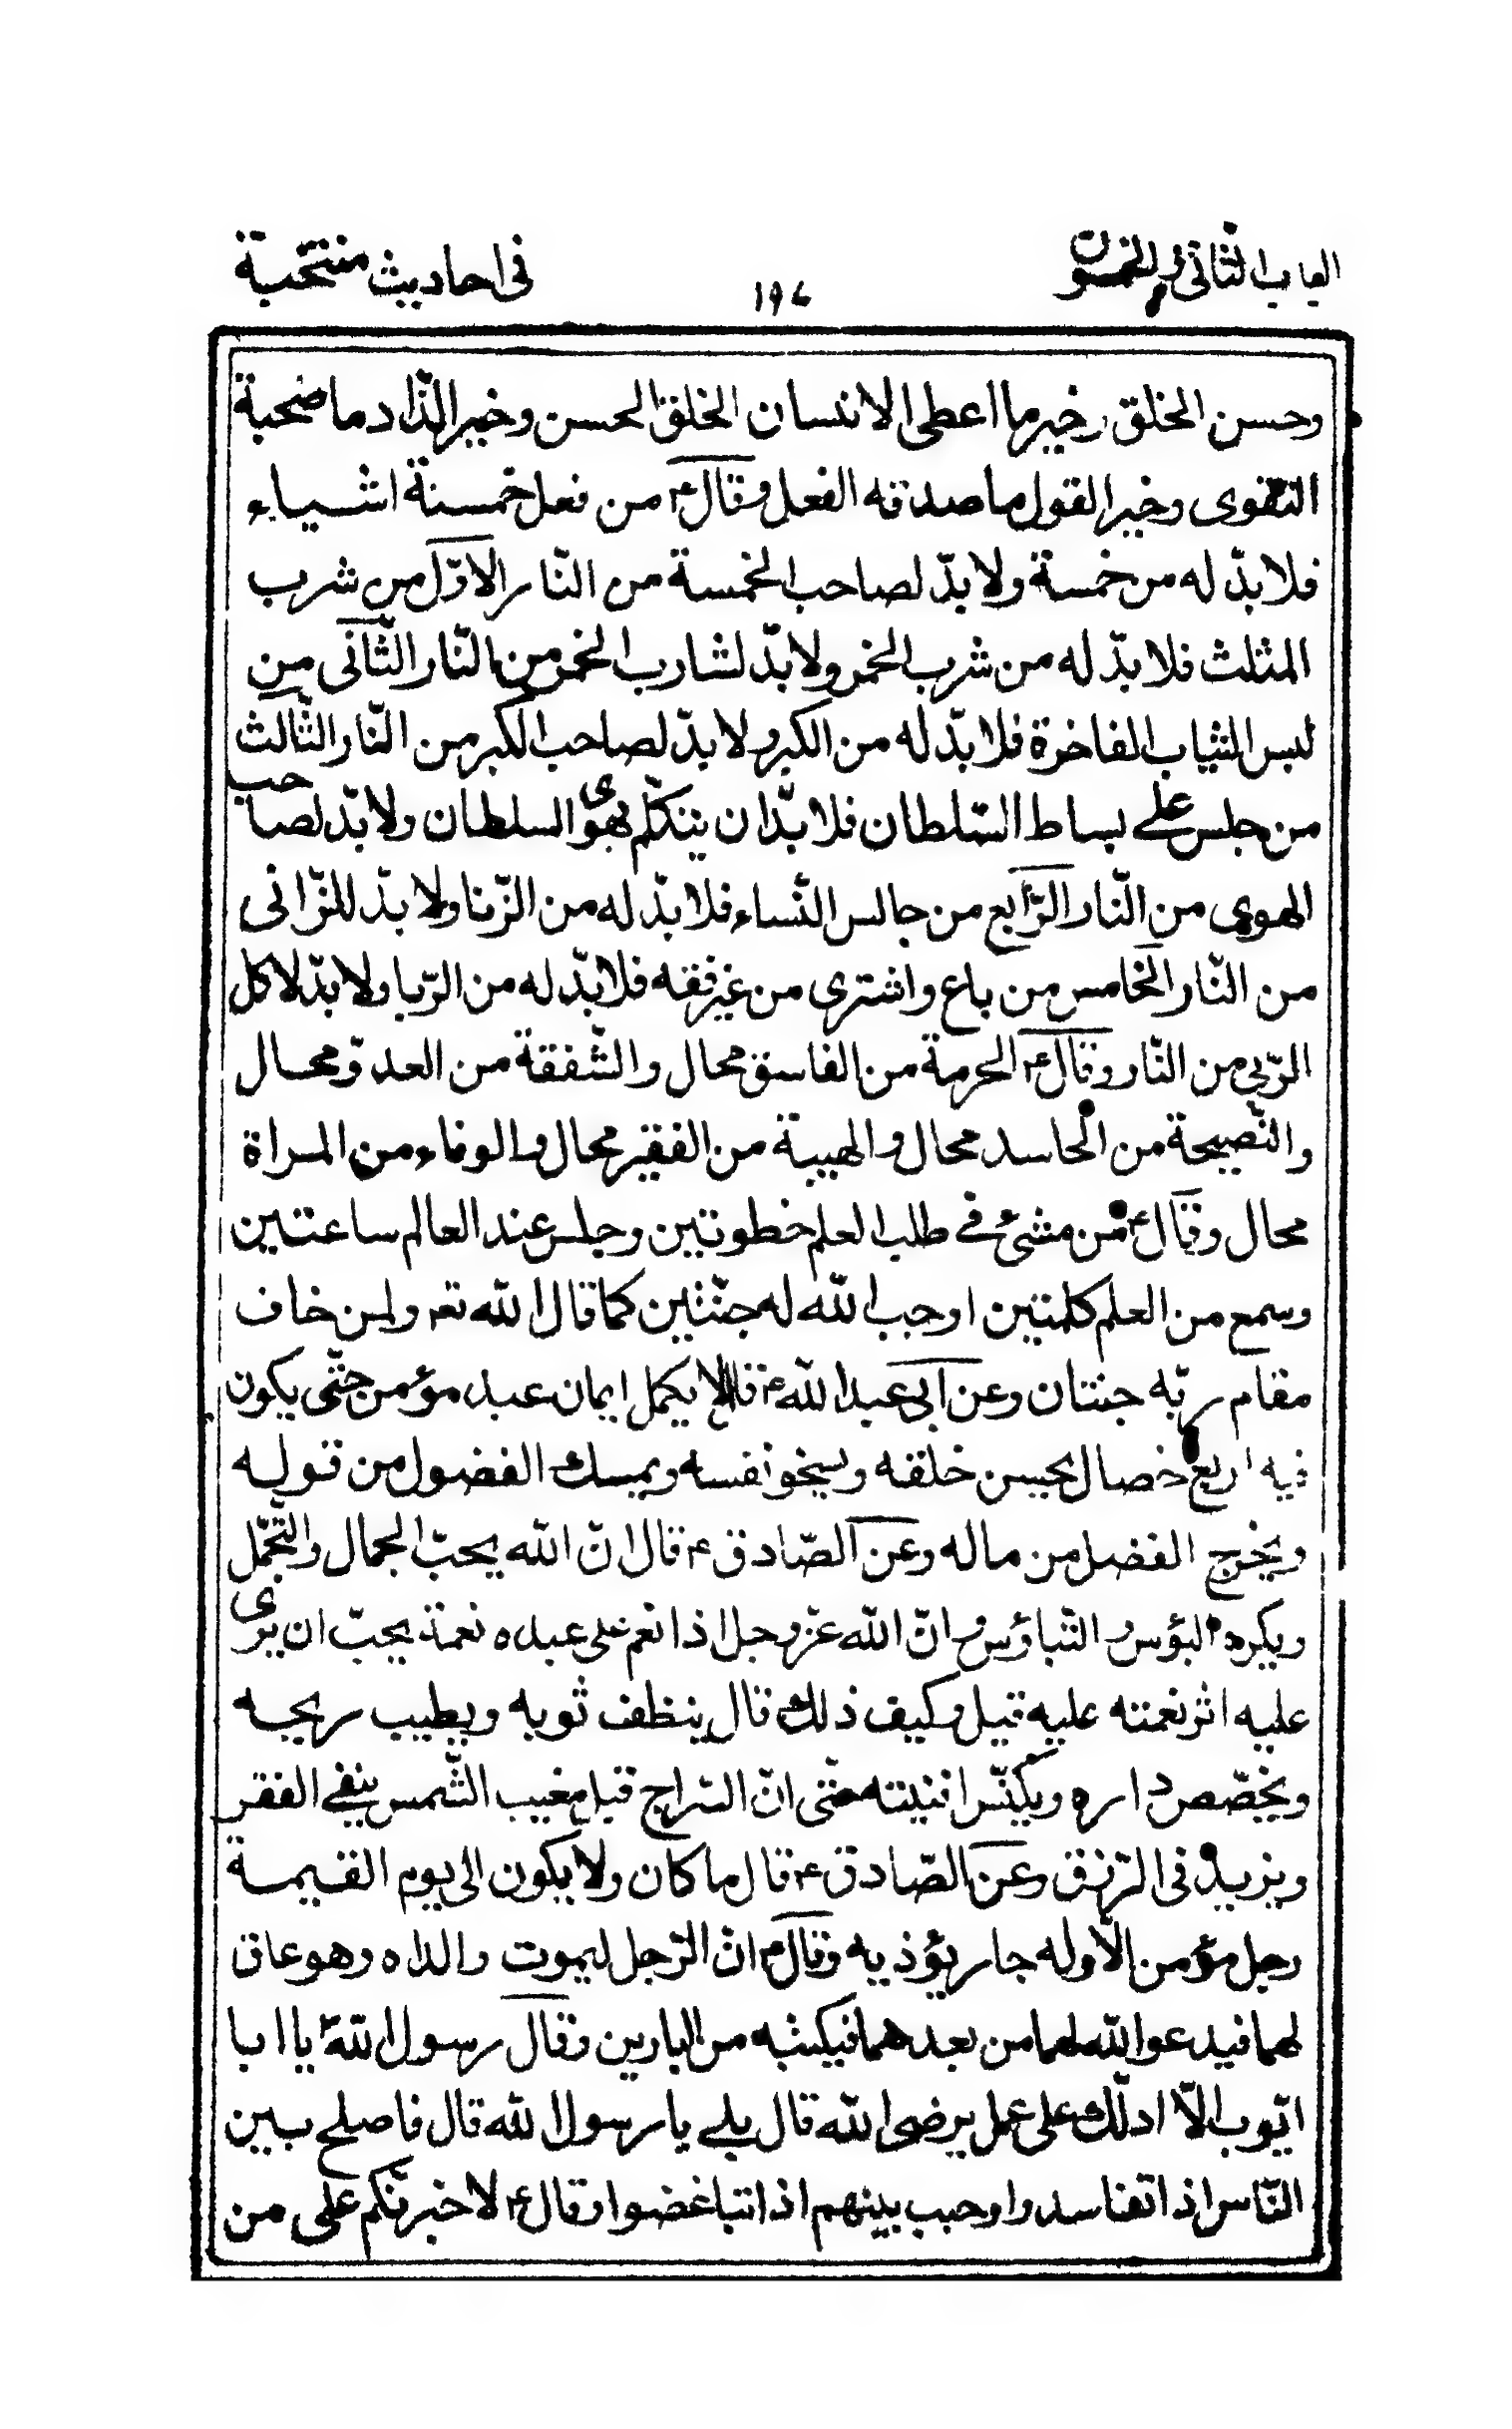 الباب الثاني والخمسون
١٩٤
فى احاديث منتخبة
وحسن الخلق وخير ما اعطى الانسان الخلق الحسن وخير الزّاد ما صحبة
التقوى وخير القول ما صدقه الفعل وقال ع من فعل خمسة اشياء
فلا بدّ له من خمسة ولا بدّ لصاحب الخمسة من النّار الاوّل من شرب
المثلث فلا بدّ له من شرب الخمر ولا بدّ لشارب الخمر من النّار الثّانى من
لبس الثياب الفاخرة فلا بدّ له من الكبر ولا بدّ لصاحب الكبر من النّار الثّالث
من جلس على بساط السّلطان فلا بدّ ان يتكلّم بهوى السلطان ولا بدّ لصاحب
الهوى من النّار الرّابع من جالس النّساء فلا بدّ له من الزّنا ولا بدّ للزّانى
من النّار الخامس من باع واشترى من غير فقه فلا بدّ له من الرّبا ولا بدّ لاكل
الرّبى من النّار وقال ع الحرمة من الفاسق محال والشّفقة من العدوّ محال
والنّصيحة من الحاسد محال والهيبة من الفقير محال والوفاء من المراة
محال وقال ع من مشىء فى طلب العلم خطوتين وجلس عند العالم ساعتين
وسمع من العلم كلمتين اوجب الله له جنّتين كما قال الله تعه ولمن خاف
مقام ربّه جنتان وعن ابى عبد الله ع قال لا يكمل ايمان عبد مؤمن حتّى يكون
فيه اربع خصال يحسن خلقه ويسخو نفسه ويمسك الفضول من قوله
ويخرج الفضل من ماله وعن الصّادق ع قال انّ الله يحبّ الجمال والتّجمّل
ويكره البؤس والتّباؤس وانّ الله عزّ وجل اذا انعم على عبده نعمة يحبّ ان يرى
عليه اثر نعمته عليه قيل وكيف ذلك قال ينظف ثوبه ويطيب ريحه
ويجصّص داره ويكنّس افنيته حتّى انّ السّراج قبل مغيب الشّمس ينفى الفقر
ويزيد فى الرّزق وعن الصّادق ع قال ما كان ولا يكون الى يوم القيمة
رجل مؤمن الّا وله جار يؤذيه وقال ع انّ الرّجل ليموت والداه وهو عاق
لهما فيدعو الله لهما من بعدهما فيكتبه من البارين وقال رسول اللهّ يا ابا
ايّوب الّا ادلّك على عمل يرضى الله قال بلى يا رسول الله قال فاصلح بين
النّاس اذا تفاسدوا وحبب بينهم اذا تباغضوا وقال ع لاخبرنّكم على من